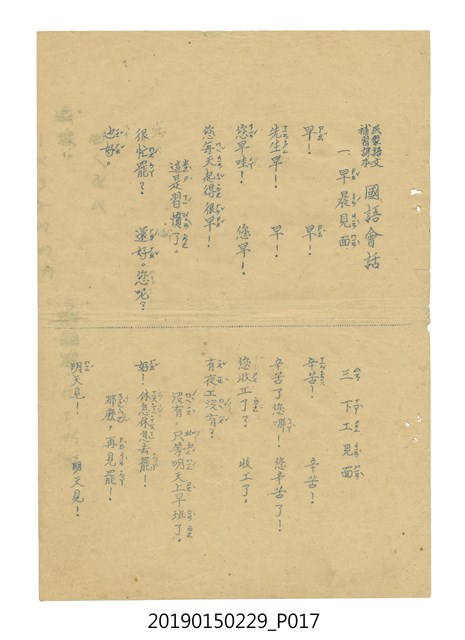 民眾語文
補習課本
國語會話
一 早晨見面
早！ 早！
先生早！ 早！
您早哇！ 您早！
您每天起得很早！
這是習慣了。
很忙罷？ 還好。您呢？
也好。
三 下工見面
辛苦！ 辛苦！
辛苦了您哪！ 您辛苦了！
您收工了？ 收工了。
有夜工沒有？
沒有，只等明天上早班了。
好！休息休息去罷！
那麼，再見罷！
明天見！ 明天見！
20190150229_P017